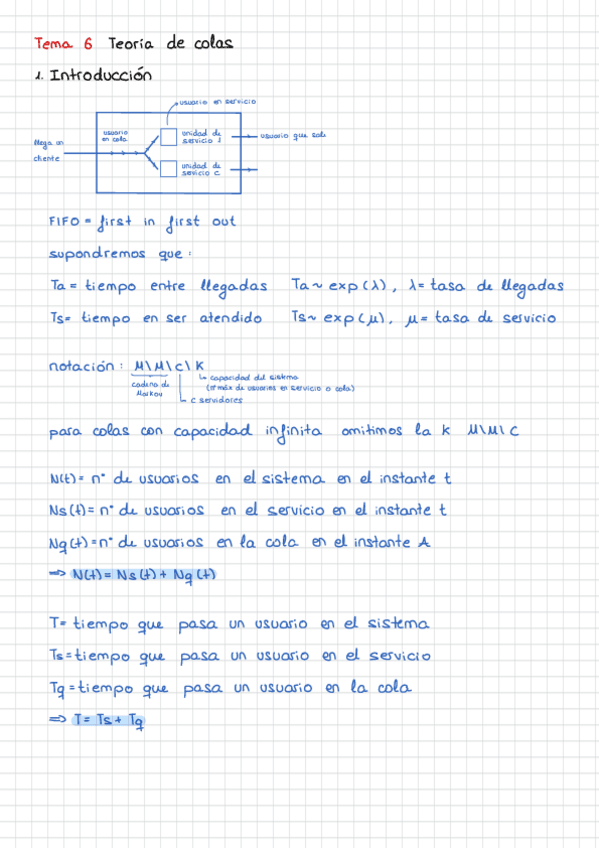 Tema 6 Teoría de colas
1. Introducción
usuario en servicio
llega un
cliente
usuario
en cola
unidad de
servicio 1
usuario que sale
unidad de
servicio c
FIFO = first in first out
supondremos que:
Ta = tiempo entre llegadas Ta ~ exp(λ), λ = tasa de llegadas
Ts = tiempo en ser atendido Ts ~ exp(μ), μ = tasa de servicio
notación: M\M\c\K
capacidad del sistema
(nº máx de usuarios en servicio o cola)
cadena de
Markov
c servidores
para colas con capacidad infinita omitimos la k M\M\C
N(t) = nº de usuarios en el sistema en el instante t
Ns(t) = nº de usuarios en el servicio en el instante t
Nq(t) = nº de usuarios en la cola en el instante A
⇒ N(t) = Ns(t) + Nq(t)
T = tiempo que pasa un usuario en el sistema
Ts = tiempo que pasa un usuario en el servicio
Tq = tiempo que pasa un usuario en la cola
⇒ T = Ts + Tq